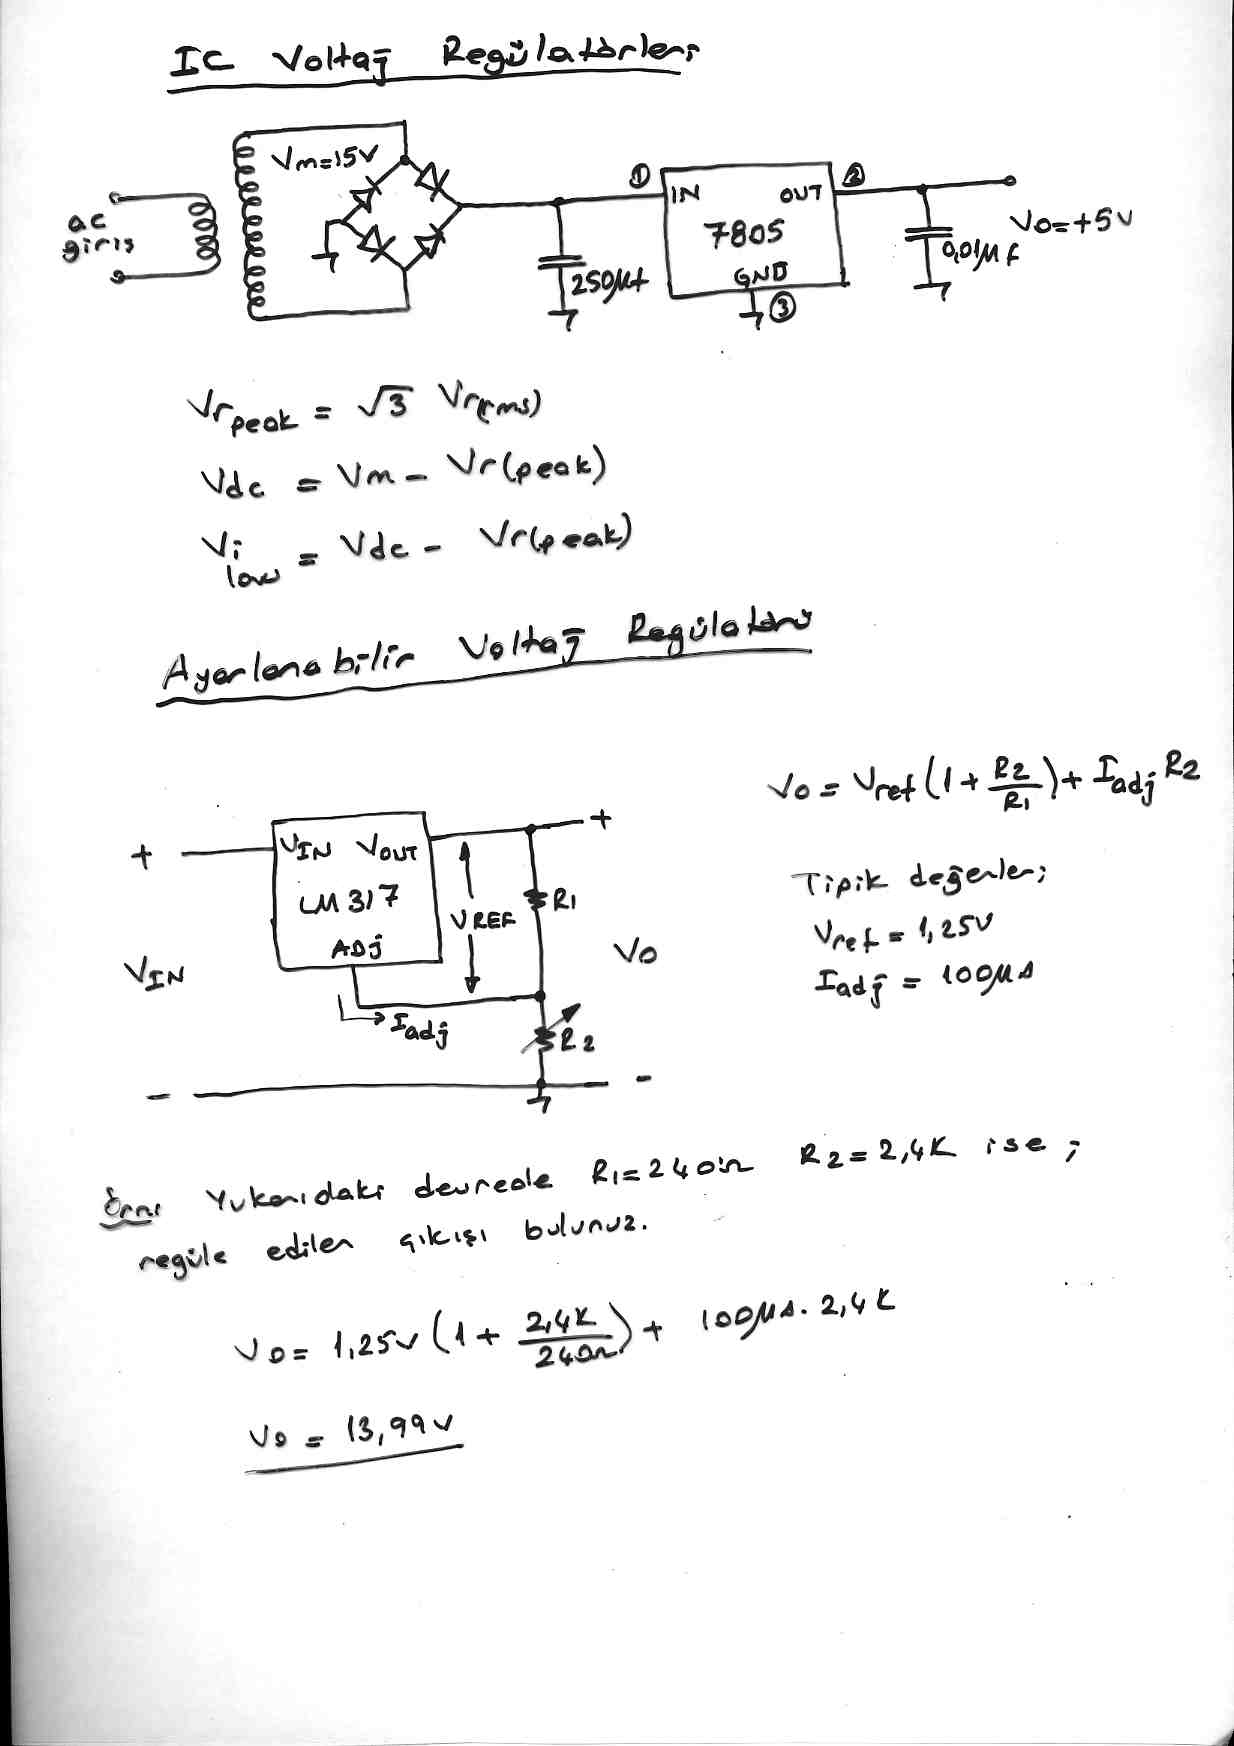 IC Voltaj Regülatörleri
Vm=15V
ac
giriş
① IN OUT ②
7805
GND
③
250µf
0,01µf
Vo=+5V
Vr peak = √3 Vr(rms)
Vdc = Vm - Vr(peak)
Vi low = Vdc - Vr(peak)
Ayarlanabilir Voltaj Regülatörü
Vo = Vref (1 + R2/R1) + Iadj R2
+ VIN VOUT +
LM317
ADJ
VREF
R1
VIN
Vo
Iadj
R2
- -
Tipik değerler;
Vref = 1,25V
Iadj = 100µA
Örn: Yukarıdaki devrede R1=240Ω R2=2,4K ise;
regüle edilen çıkışı bulunuz.
Vo = 1,25V (1 + 2,4K/240Ω) + 100µA. 2,4K
Vo = 13,99V